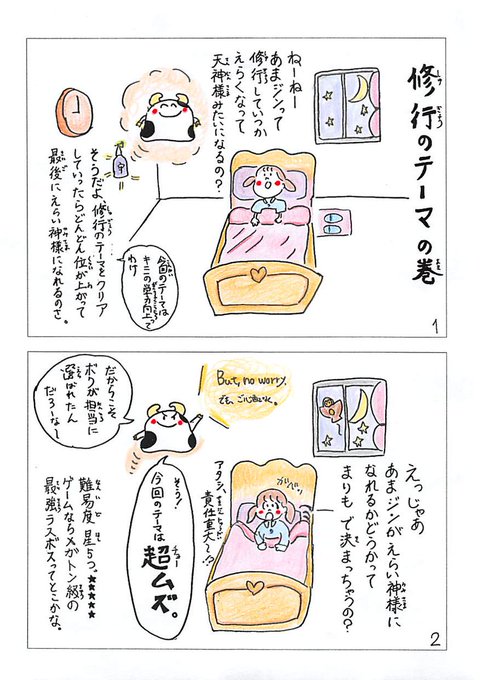 修行のテーマの巻
ねーねー
あまジンって
修行していつか
えらくなって
天神様みたいになるの？
そうだよ 修行のテーマをクリア
していったらどんどん位が上がって
最後にえらい神様になれるのさ。
今回のテーマは
キミの学力向上って
わけ
1
えっじゃあ
あまジンがえらい神様に
なれるかどうかって
まりもで決まっちゃうの？
ガバッ
アタシ、
責任重大〜!?
But, no worry.
でも、ご心配なく。
だからこそ
ボクが担当に
選ばれたん
だろーな〜
そう！
今回のテーマは
超ムズ。
難易度 星5つ。★★★★★
ゲームならメガトン級の
最強ラスボスってとこかな。
2